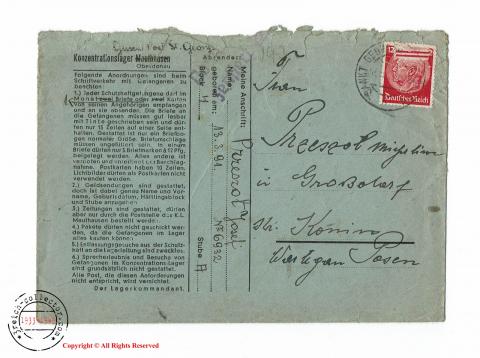 Gusen Post St. Georgen
Konzentrationslager Mauthausen
Oberdonau
Folgende Anordnungen sind beim
Schriftverkehr mit Gefangenen zu
beachten:
1.) Jeder Schutzhaftgefangene darf im
Monat zwei Briefe oder zwei Karten
von seinen Angehörigen empfangen
und an sie absenden. Die Briefe an
die Gefangenen müssen gut lesbar
mit Tinte geschrieben sein und dür-
fen nur 15 Zeilen auf einer Seite ent-
halten. Gestattet ist nur ein Briefbo-
gen normaler Größe. Briefumschläge
müssen ungefüttert sein. In einem
Briefe dürfen nur 5 Briefmarken á 12 Pfg.
beigelegt werden. Alles andere ist
verboten und unterliegt der Beschlag-
nahme. Postkarten haben 10 Zeilen.
Lichtbilder dürfen als Postkarten nicht
verwendet werden.
2.) Geldsendungen sind gestattet,
doch ist dabei genau Name und Vor-
name, Geburtsdatum, Häftlingsblock
und Stube anzugeben.
3.) Zeitungen sind gestattet, dürfen
aber nur durch die Poststelle des K.L.
Mauthausen bestellt werden.
4.) Pakete dürfen nicht geschickt wer-
den, da die Gefangenen im Lager
alles kaufen können.
5.) Entlassungsgesuche aus der Schutz-
haft an die Lagerleitung sind zwecklos.
6.) Sprecherlaubnis und Besuche von
Gefangenen im Konzentrations-Lager
sind grundsätzlich nicht gestattet.
Alle Post, die diesen Anforderungen
nicht entspricht, wird vernichtet.
Der Lagerkommandant.
Absender:
Meine Anschrift:
Name: Pereszot Josef
geboren am: 13.3.91. No 6932
Block Stube A
12
Deutsches Reich
Frau
in Großdorf
Konin
Posen
3reich-collector.com
1933-1945
Copyright © All Rights Reserved